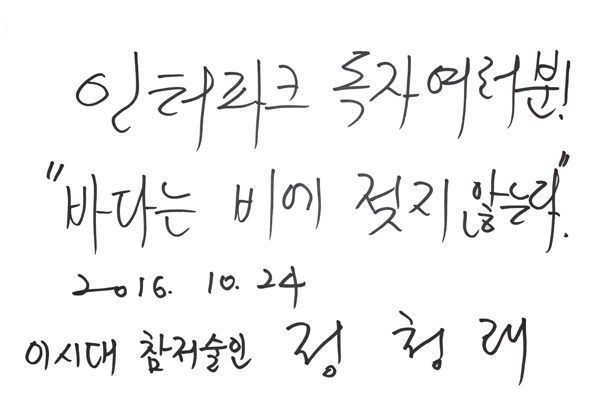 인터파크 독자여러분!
"바다는 비에 젖지 않는다".
2016. 10. 24
이시대 참저술인 정청래